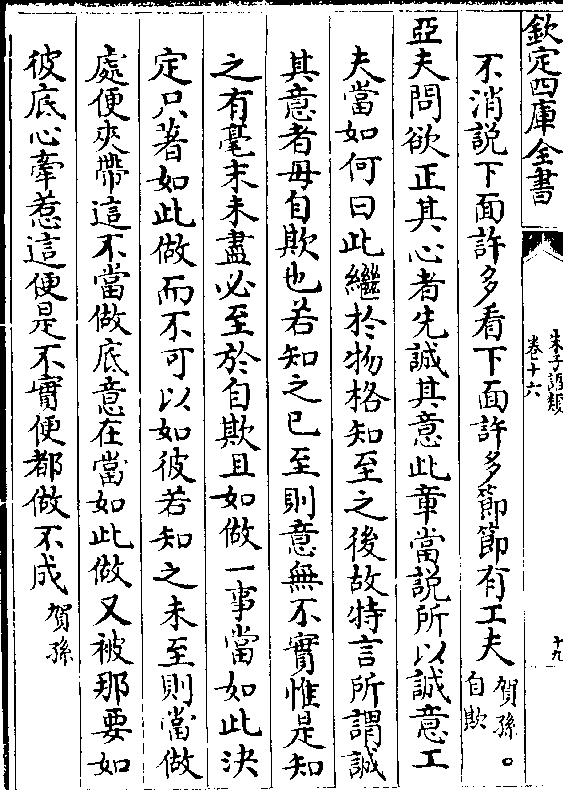 欽定四庫全書
朱子語類
卷十六
十九
不消説下面許多看下面許多節節有工夫賀孫。自欺
亞夫問欲正其心者先誠其意此章當説所以誠意工
夫當如何曰此繼於物格知至之後故特言所謂誠
其意者毋自欺也若知之已至則意無不實惟是知
之有毫末未盡必至於自欺且如做一事當如此決
定只著如此做而不可以如彼若知之未至則當做
處便夾帶這不當做底意在當如此做又被那要如
彼底心牽惹這便是不實便都做不成賀孫